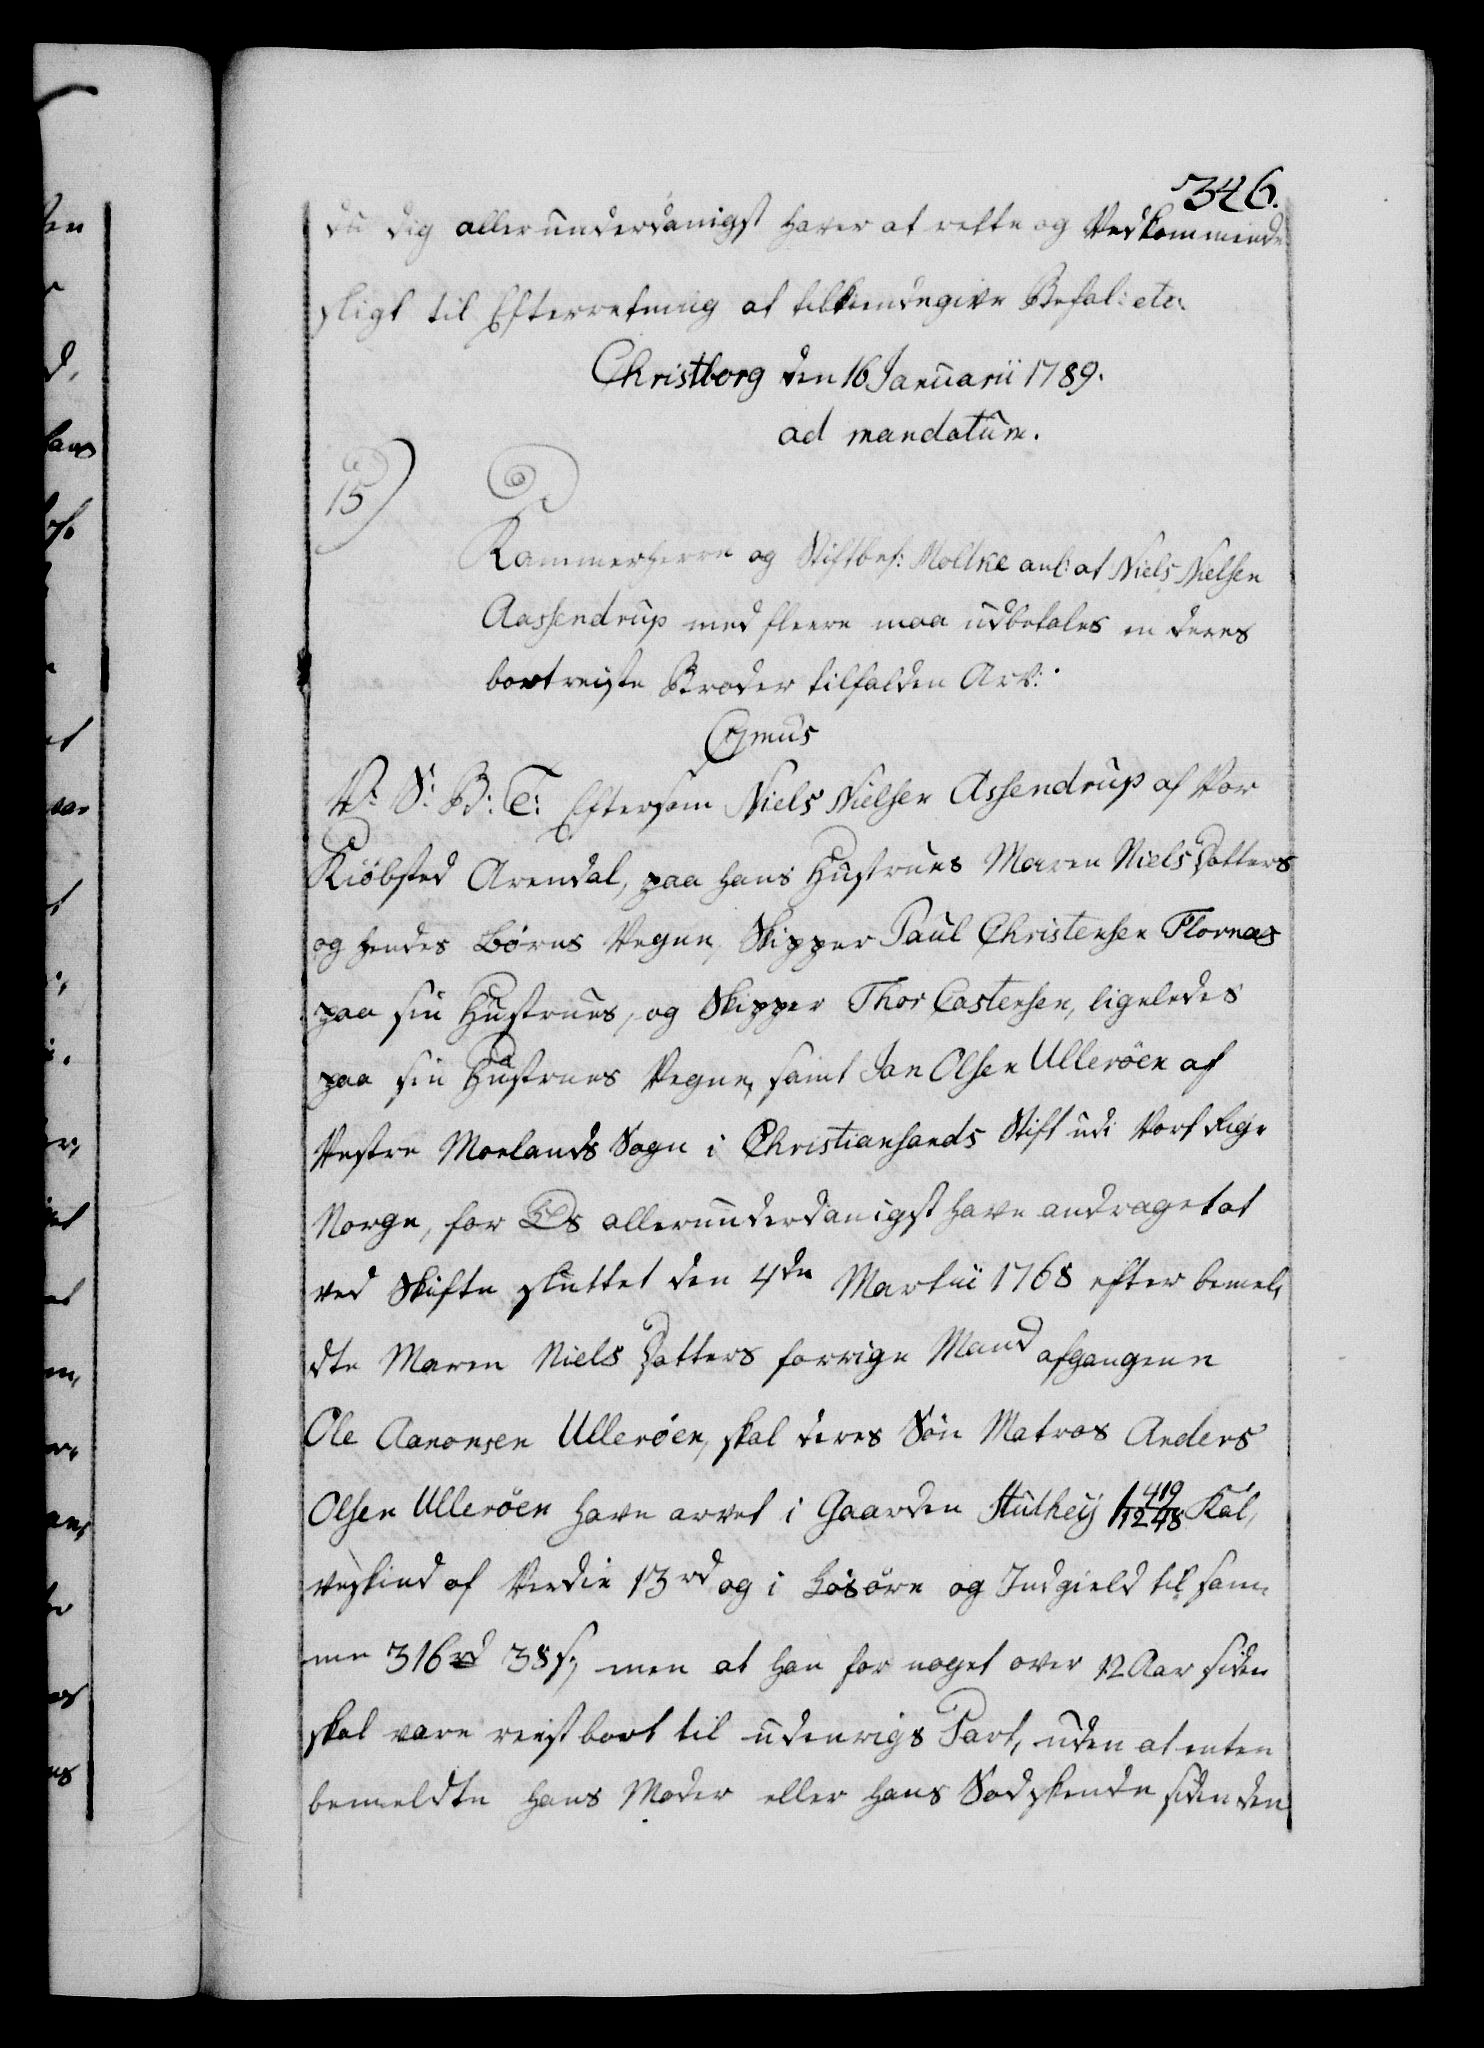 346.
du dig allerunderdanigst haver at rette og Vedkommende
sligt til Efterretning at tilkiendegive Befal: etc.
Christborg den 16 Januarii 1789.
ad mandatum.
15)
Kammerherre og Stiftbef: Moltke anl: at Niels Nielsen
Aassendrup med fleere maa udbetales en deres
bortreiste Broder tilfalden Arv:
Gemüs
V: S: B: T: Eftersom Niels Nielsen Assendrup af Vor
Kiöbsted Arendal, paa hans Hustrues Maren Niels Datters
og hendes Børns Vegne, Skipper Paul Christensen Flornæs
paa sin Hustrues, og Skipper Thor Castensen, ligeledes
paa sin Hustrues Vegne, samt Jan Olsen Ulleröen af
Vestre Moelands Sogn i Christiansands Stift udi Vort Rige
Norge, for Os allerunderdanigst have andraget at
ved Skifte sluttet den 4de Martii 1768 efter bemel,
dte Maren Niels Datters forrige Mand afgangene
Ole Aanonsen Ulleröen, skal deres Sön Matros Anders
Olsen Ulleröen have arvet i Gaarden 1 419/1248 Kal,
veskind af Verdie 13rd og i Løsöre og Indgield til sam,
me 316rd 38s; men at han for noget over 12 Aar siden
skal være reist bort til udenrigs Part, uden at enten
bemeldte hans Moder eller hans Sødskende siden den